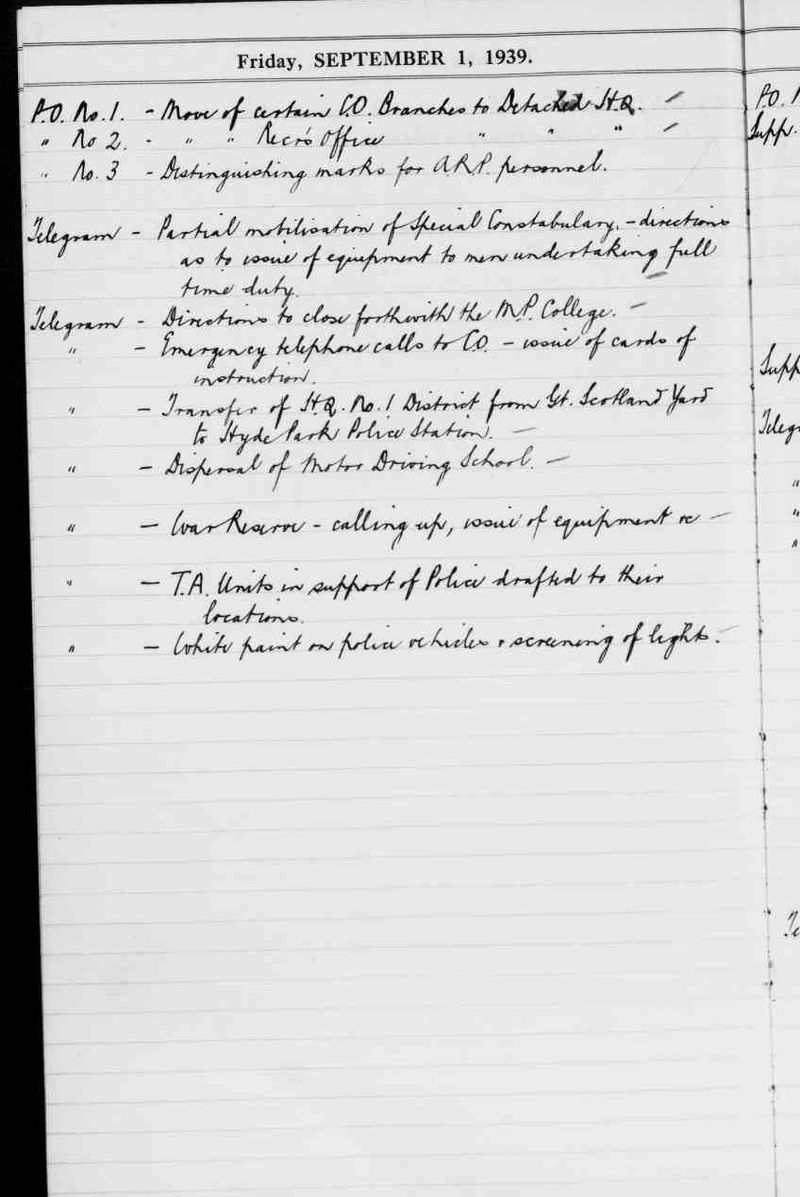 Friday, SEPTEMBER 1, 1939.
P.O. No. 1. - Move of certain C.O. Branches to Detached H.Q. -
" No 2. - " " Recr's Office " " " -
" No. 3 - Distinguishing marks for A.R.P. personnel.
Telegram - Partial mobilisation of Special Constabulary, - directions
as to issue of equipment to men undertaking full
time duty. -
Telegram - Directions to close forthwith the M.P. College. -
" - Emergency telephone calls to C.O. - issue of cards of
instruction.
" - Transfer of H.Q. No. 1 District from Gt. Scotland Yard
to Hyde Park Police Station. -
" - Dispersal of Motor Driving School. -
" - War Reserve - calling up, issue of equipment &c -
" - T.A. Units in support of Police drafted to their
locations.
" - White paint on police vehicles & screening of lights. -
P.O.
Supp.
Supp
Teleg
"
"
"